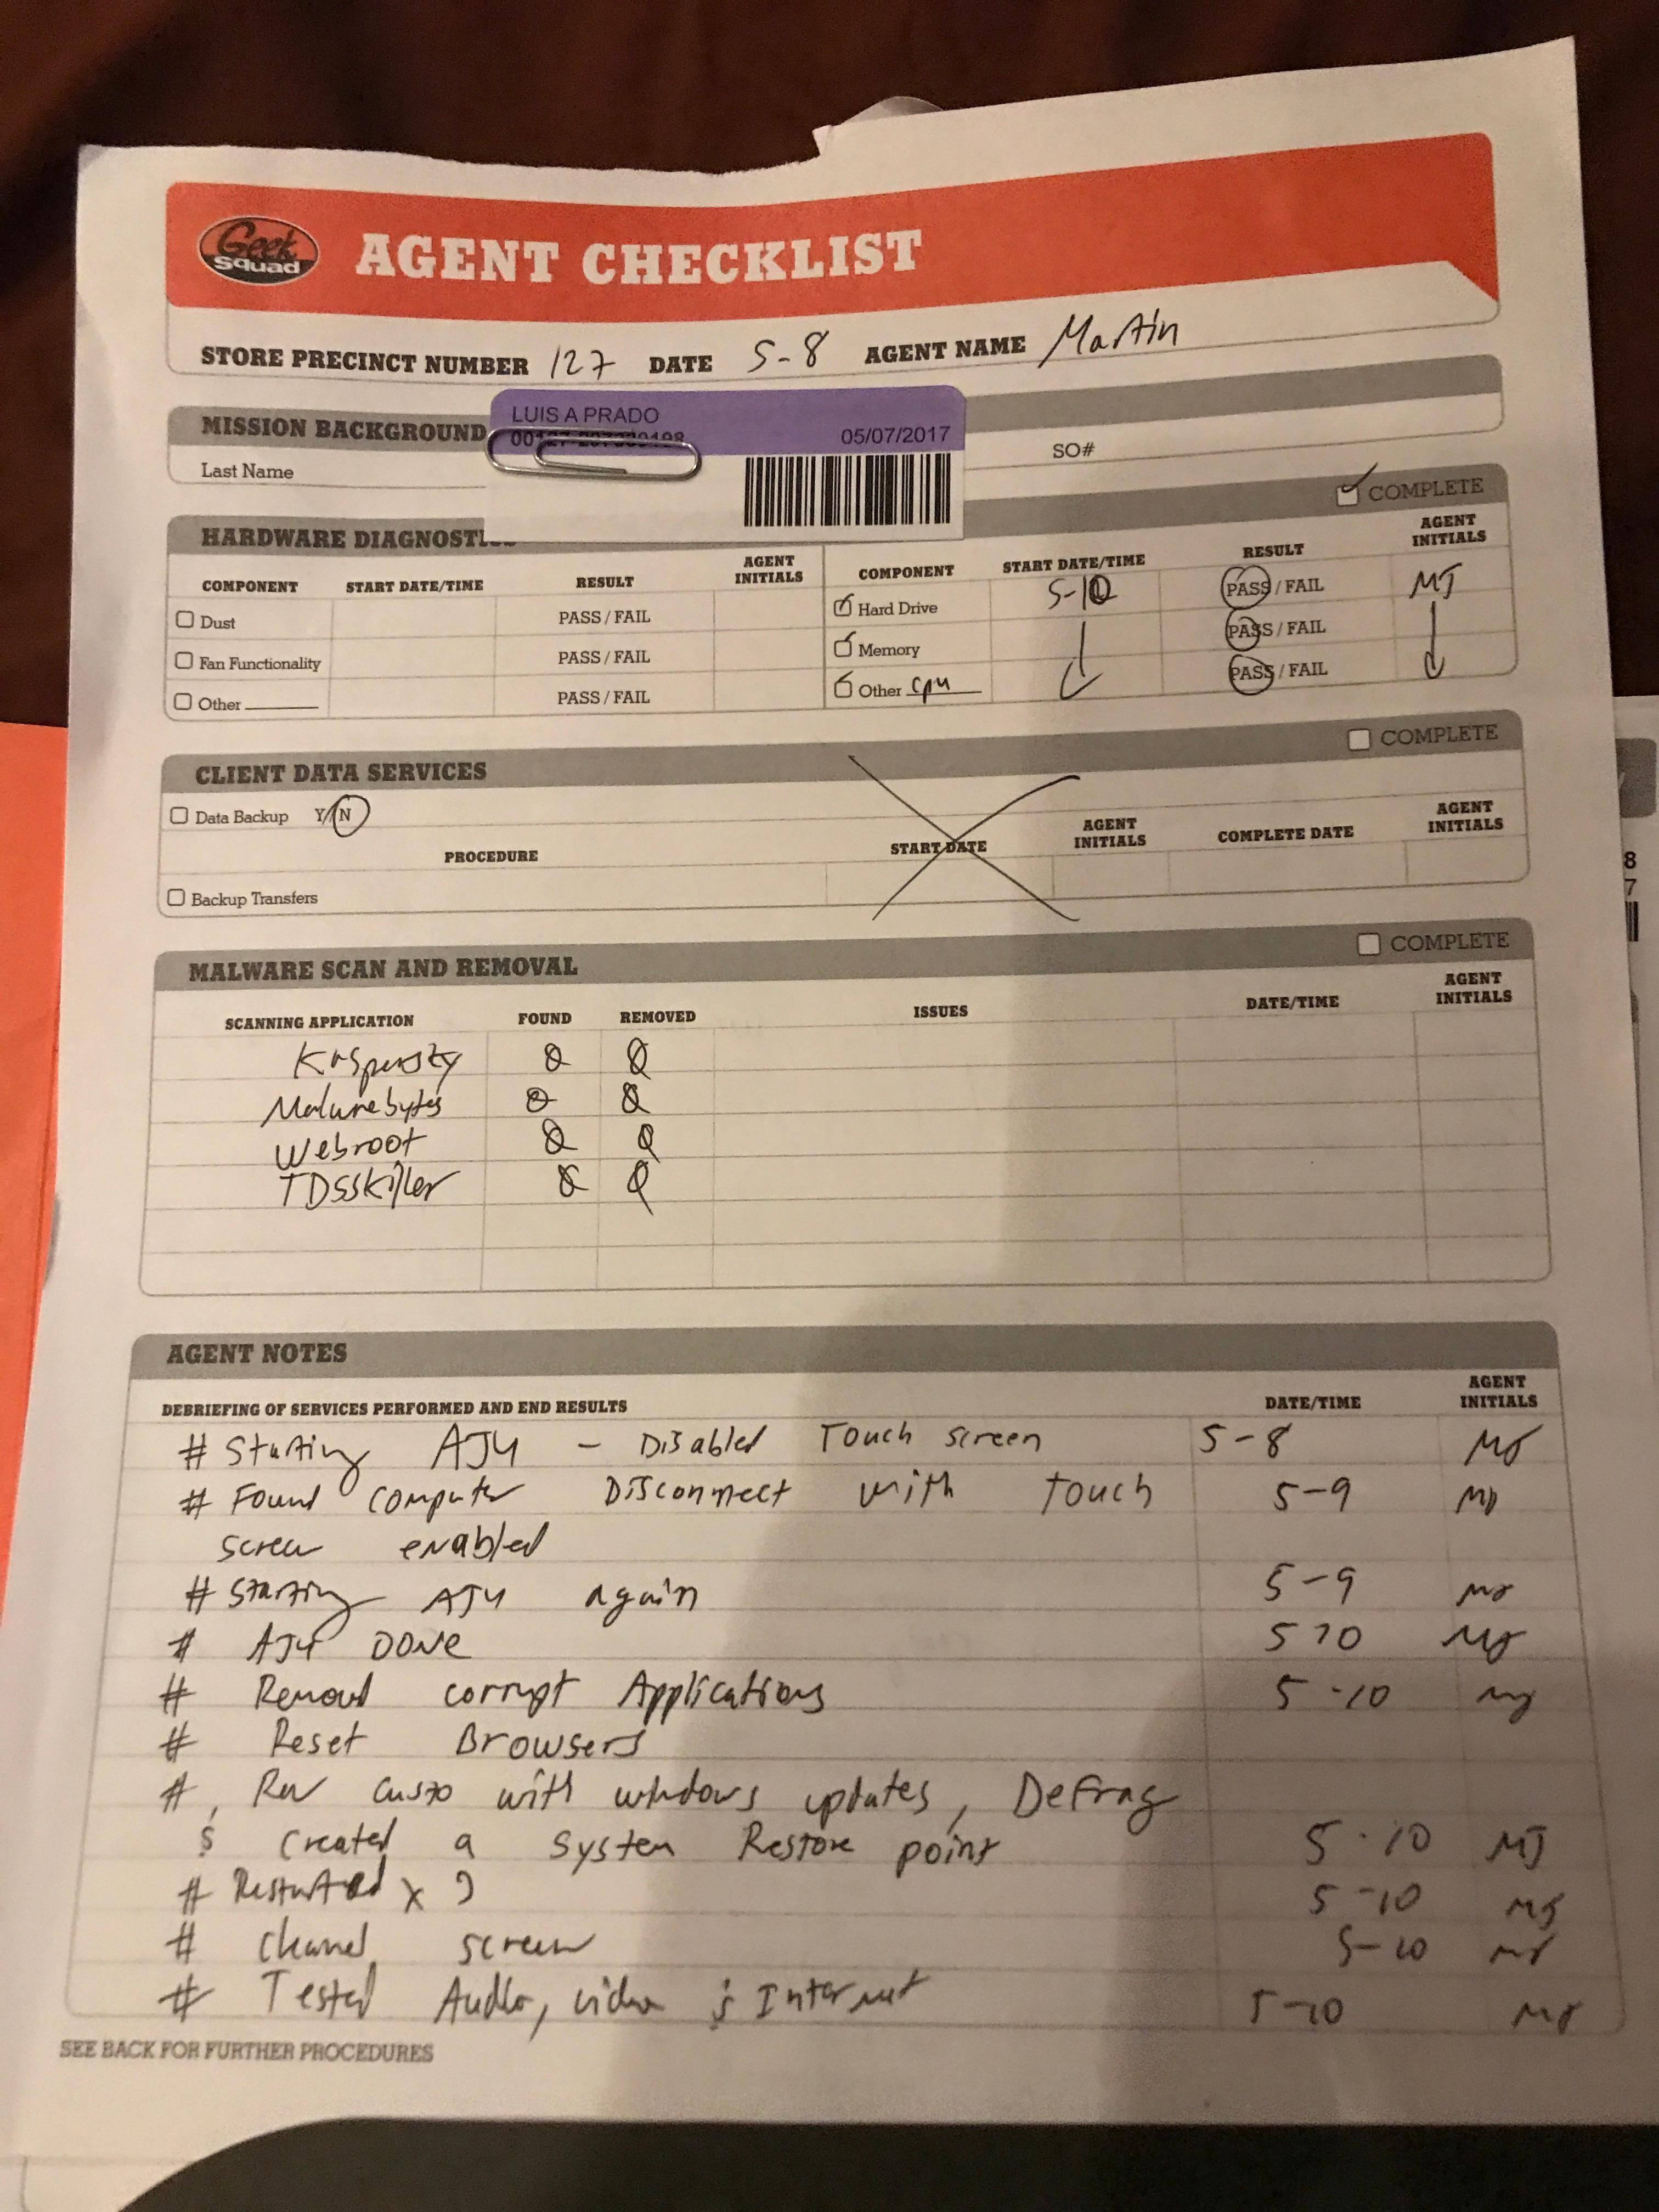 Geek Squad
AGENT CHECKLIST
STORE PRECINCT NUMBER 127 DATE 5-8 AGENT NAME Martin
MISSION BACKGROUND
LUIS A PRADO
05/07/2017
Last Name
SO#
HARDWARE DIAGNOST
COMPLETE
COMPONENT START DATE/TIME RESULT AGENT INITIALS COMPONENT START DATE/TIME RESULT AGENT INITIALS
Dust PASS / FAIL Hard Drive 5-10 PASS / FAIL MJ
Fan Functionality PASS / FAIL Memory PASS / FAIL
Other PASS / FAIL Other cpu PASS / FAIL
CLIENT DATA SERVICES COMPLETE
Data Backup Y/N
PROCEDURE START DATE AGENT INITIALS COMPLETE DATE AGENT INITIALS
Backup Transfers
MALWARE SCAN AND REMOVAL COMPLETE
SCANNING APPLICATION FOUND REMOVED ISSUES DATE/TIME AGENT INITIALS
Kaspersky 0 0
Malwarebytes 0 0
Webroot 0 0
TDSSKiller 0 0
AGENT NOTES
DEBRIEFING OF SERVICES PERFORMED AND END RESULTS DATE/TIME AGENT INITIALS
# Starting AJU - Disabled Touch screen 5-8 MJ
# Found computer Disconnect with touch 5-9 MJ
screen enabled
# Starting AJU again 5-9 MJ
# AJU DONE 5-10 MJ
# Removed corrupt Applications 5-10 MJ
# Reset Browsers
# with windows updates, Defrag
Created a System Restore point 5-10 MJ
# Restarted x 5-10 MJ
# Cleaned screen 5-10 MJ
# Tested Audio, video & Internet 5-10 MJ
SEE BACK FOR FURTHER PROCEDURES
8
7